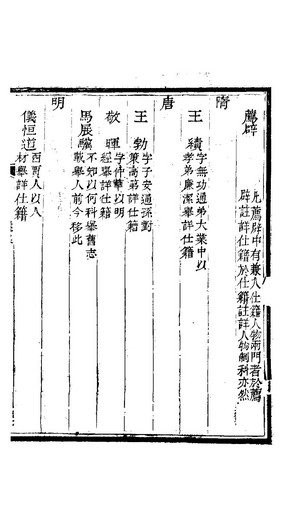 薦辟
凡薦辟中有兼入仕籍人物兩門者於薦
辟註詳仕籍於仕籍註詳人物制科亦然
隋
王績
字無功通弟大業中以
孝弟廉潔舉詳仕籍
唐
王勃
字子安通孫對
策高第詳仕籍
敬暉
字仲曄以明
經舉詳仕籍
馬展驥
不知以何科舉舊志
載舉人前今移此
明
儀恒道
酉酉人以人
材舉詳仕籍